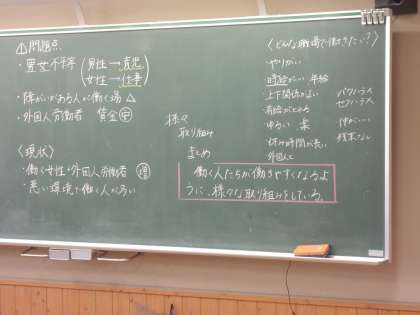 ⚠問題点
・男女不平等（男性→育児
女性→仕事）
・障がいがある人に働く場 △
・外国人労働者 賃金㊦
〈現状〉
・働く女性・外国人労働者 ㊞
・悪い環境で働く人が多い
様々
取り組み
まとめ
働く人たちが働きやすくなるよ
うに、様々な取り組みをしている。
〈どんな職場で働きたい？〉
・やりがい
・時給がいい 年給
・上下関係がない パワハラ
セクハラ
・有給がとれる
・ゆるい 楽 仲がいい
・休み時間が長い 残業なし
・外国人と